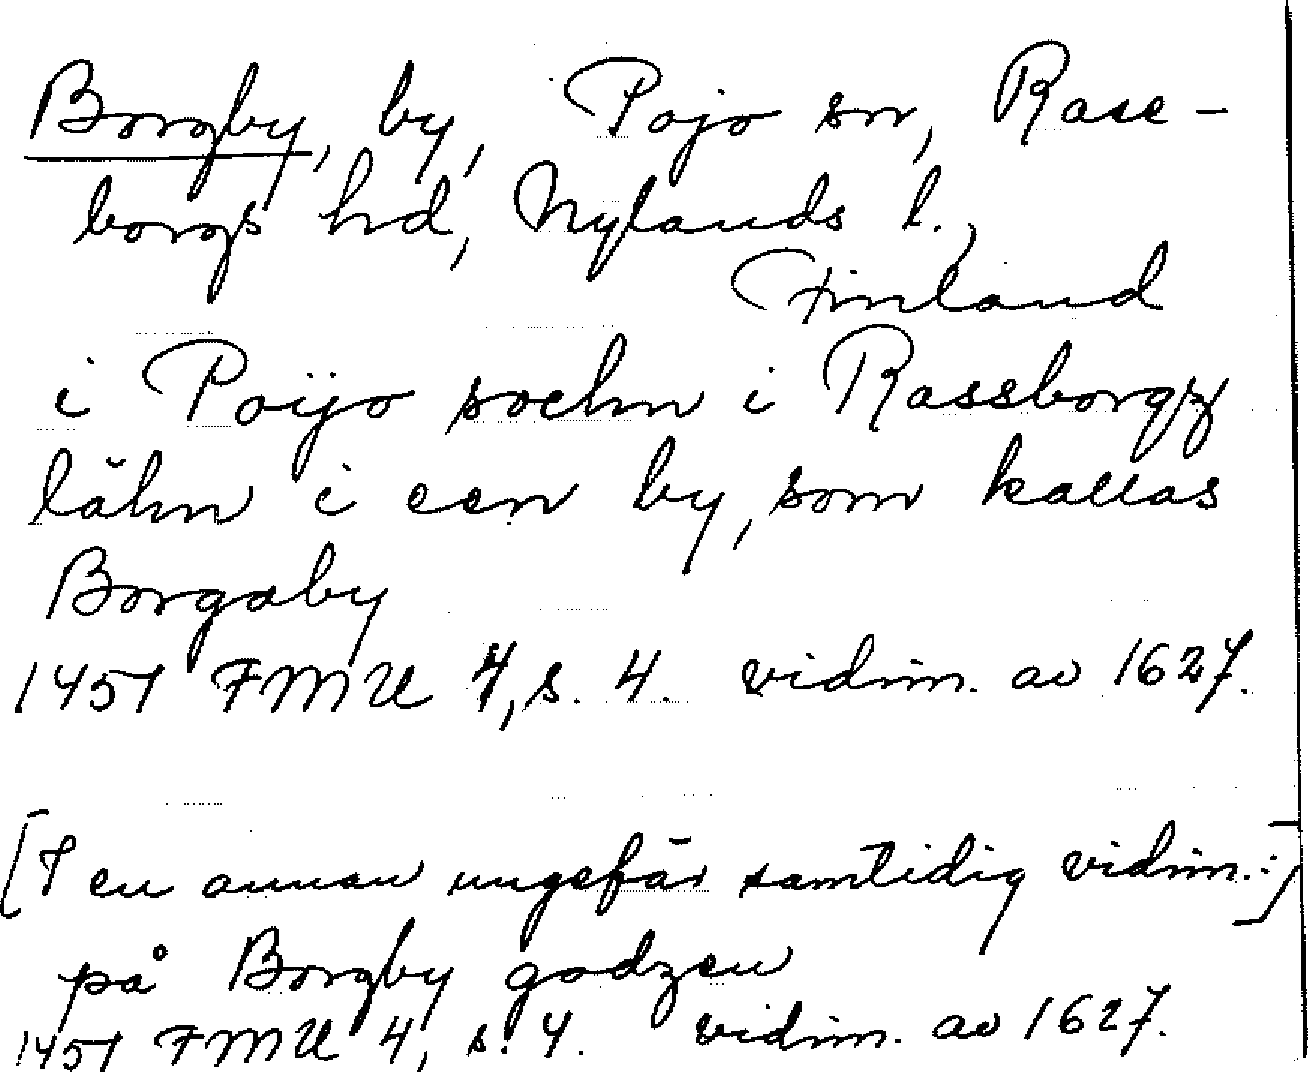 Borgby, by, Pojo sn, Rase-
borgs hd, Nylands l.,
Finland
i Poijo sochn i Rassborgz
lähn i een by, som kallas
Borgaby
1451 FMU 4, s. 4. vidim. av 1627.
[I en annan ungefär samtidig vidim.:]
på Borgby godzen
1451 FMU 4, s. 4. vidim. av 1627.